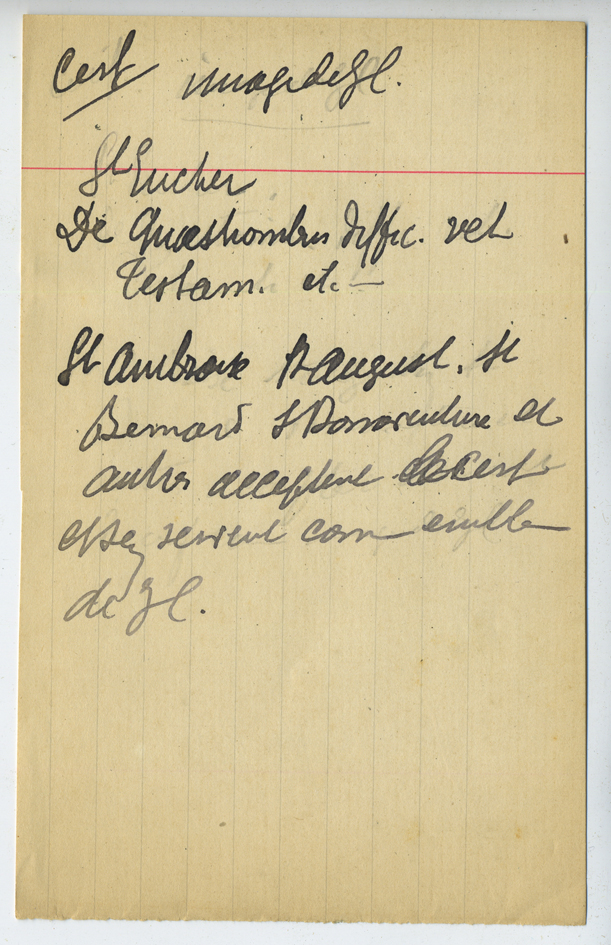 Cerf image de J C.
St Eucher
De Quaestionibus diffic. vet
Testam. et. —
St Ambroise St August. St
Bernard St Bonaventure et
autres acceptent le cerf
et s'en servent com
de J C.